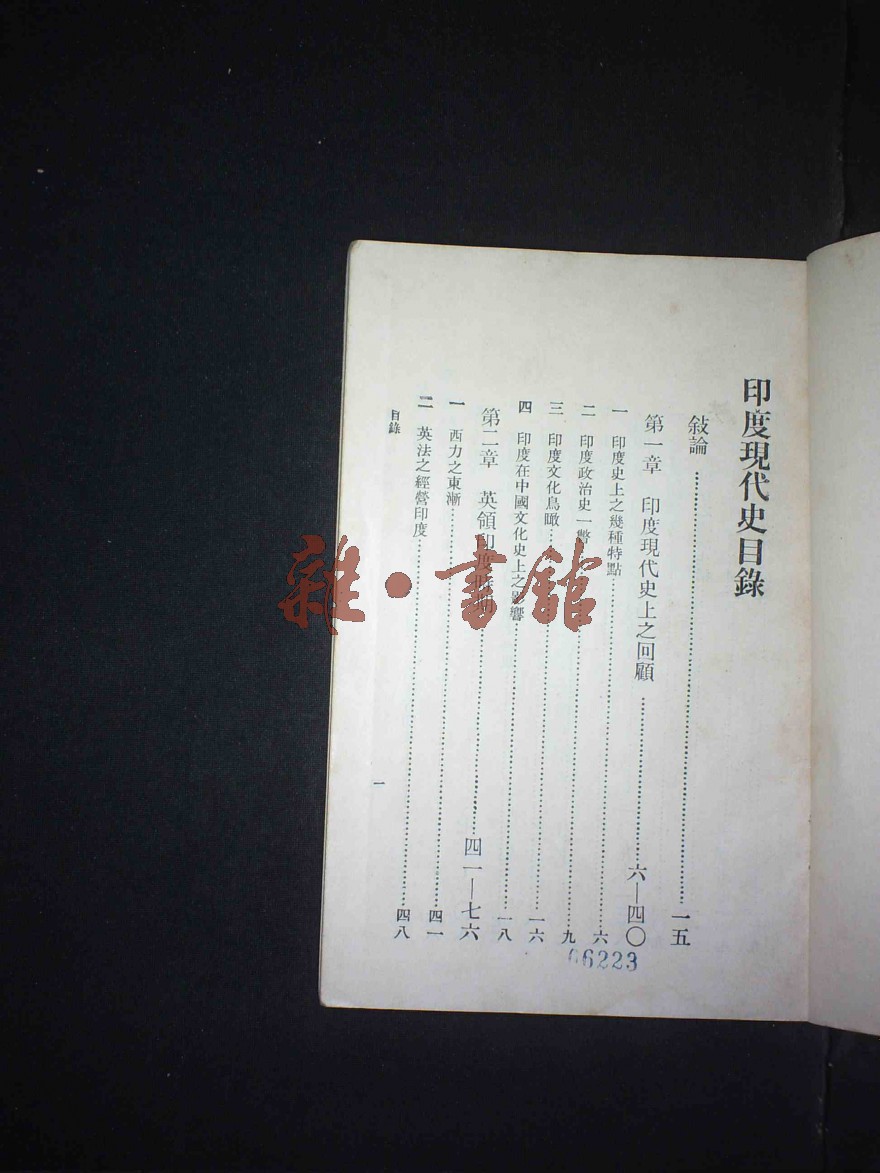 印度現代史目錄
敍論……一五
第一章 印度現代史上之回顧……六—四〇
一 印度史上之幾種特點……六
二 印度政治史一瞥……九
三 印度文化鳥瞰……一六
四 印度在中國文化史上之影響……一八
第二章 英領印度……四一—七六
一 西力之東漸……四一
二 英法之經營印度……四八
目錄
一
06223
雜·書館